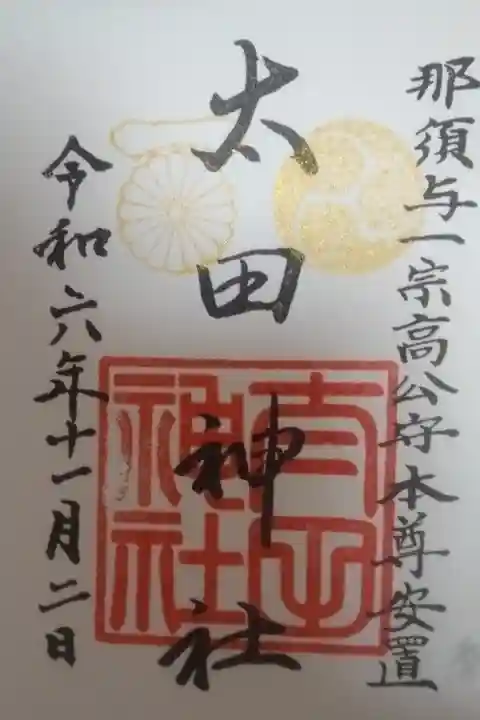 那須与一宗高公守本尊安置
太田神社
太田神社
令和六年十一月二日